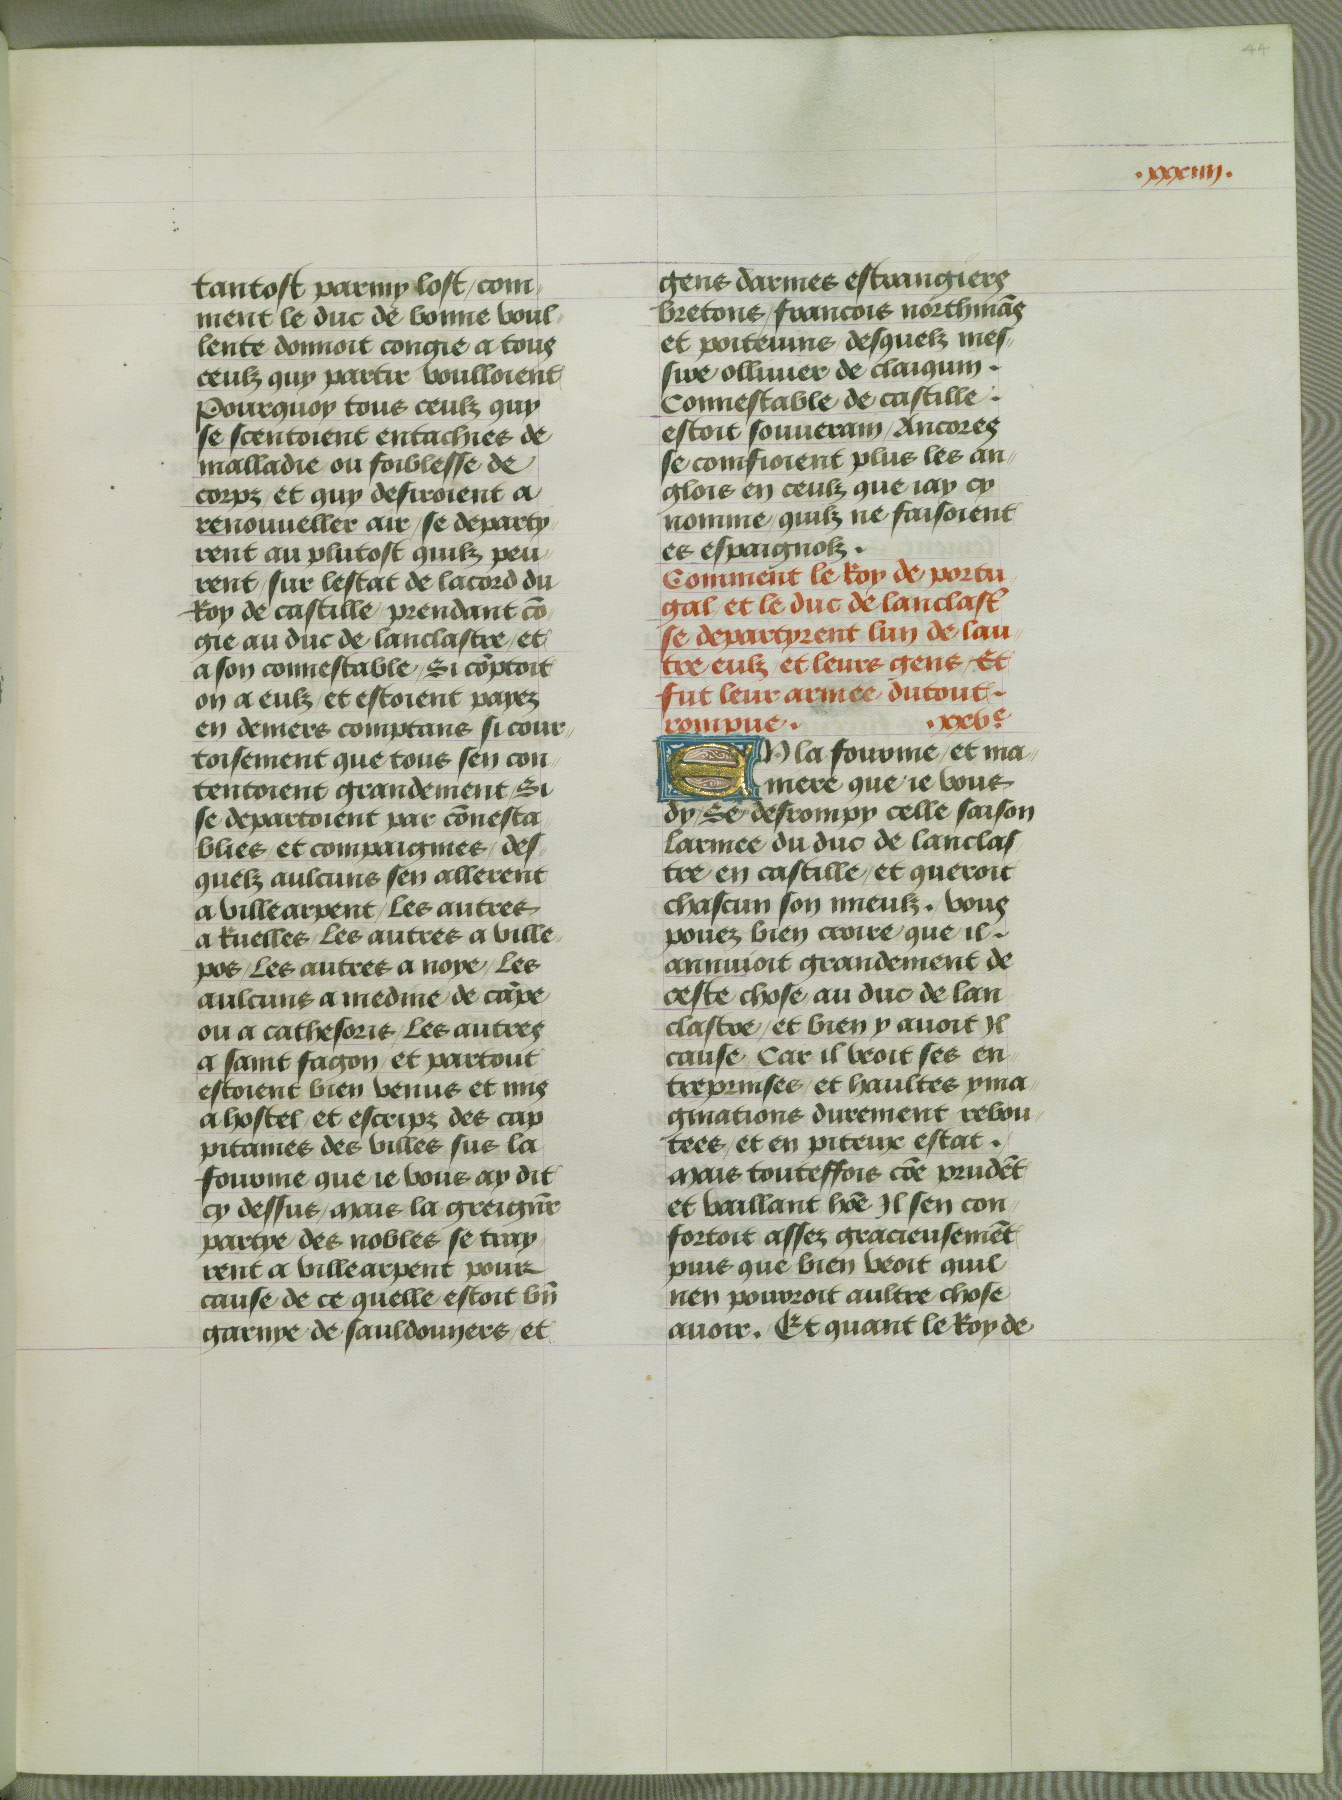 44
.xxxiiii.
tantost parmy lost / com
ment le duc de bonne voul
lente donnoit congie a tous
ceulz quy partir voulloient
Pourquoy tous ceulz quy
se scentoient entachies de
malladie ou foiblesse de
corpz et quy desiroient a
renouueller air / se departy
rent au plutost quilz peu
rent / sur lestat de lacord du
Roy de castille / prendant cō
gie au duc de lanclastre / et
a son connestable / Si cōptoit
on a eulz / et estoient payez
en deniers comptans si cour
toisement que tous sen con
tentoient grandement / Si
se departoient par cōnesta
blies / et compaignies / des
quelz aulcuns sen allerent
a villearpent / Les autres
a Ruelles / Les autres a ville
pos / Les autres a noye / Les
aulcuns a medine de cāpe
ou a cathesoris / Les autres
a saint fagon / et partout
estoient bien venus et mis
a hostel / et escripz des cap
pitaines des villes sus la
fourme que ie vous ay dit
cy dessus / Mais la greignr̄
partye des nobles se tray
rent a villearpent pour
cause de ce quelle estoit bn̄
garnye de sauldoyers / et
gens darmes estrangiers
bretons / francois northmās
et poiteuins / desquelz mes
sire olliuier de claiquin .
Connestable de castille .
estoit souuerain / Ancores
se comfioient plus les an
glois en ceulz que iay cy
nomme / quilz ne faisoient
es espaignolz .
Comment le Roy de portu
gal et le duc de lanclast̄
se departyrent lun de lau
tre eulz et leurs gens / Et
fut leur armee dutout .
rompue . .xxve
EN la fourme / et ma
niere que ie vous
dy / Se desrompy celle saison
larmee du duc de lanclas
tre en castille / et queroit
chascun son mieulz . vous
pouez bien croire que il .
annuioit grandement de
ceste chose au duc de lan
clastre / et bien y auoit Il
cause / Car il veoit ses en
treprinses / et haultes yma
ginations durement rebou
tees / et en piteux estat .
Mais touteffois cōe prudēt
et vaillant hōe Il sen con
fortoit assez gracieusemēt
puis que bien veoit quil
nen pourroit aultre chose
auoir . Et quant le Roy de